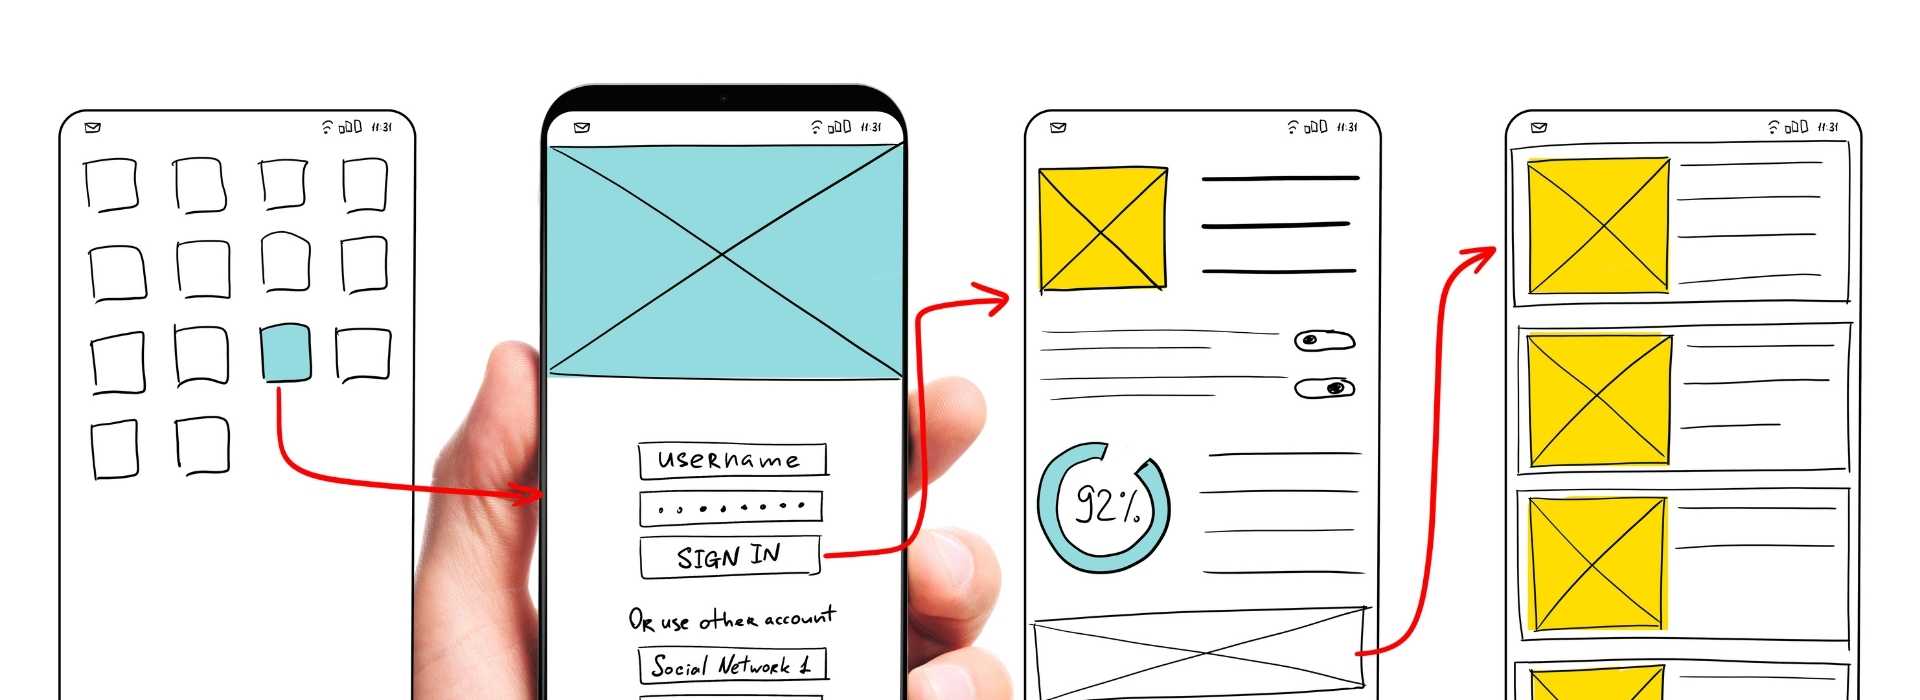 11:31
11:31
username
SIGN IN
Or use other account
Social Network 1
11:31
92%
11:31